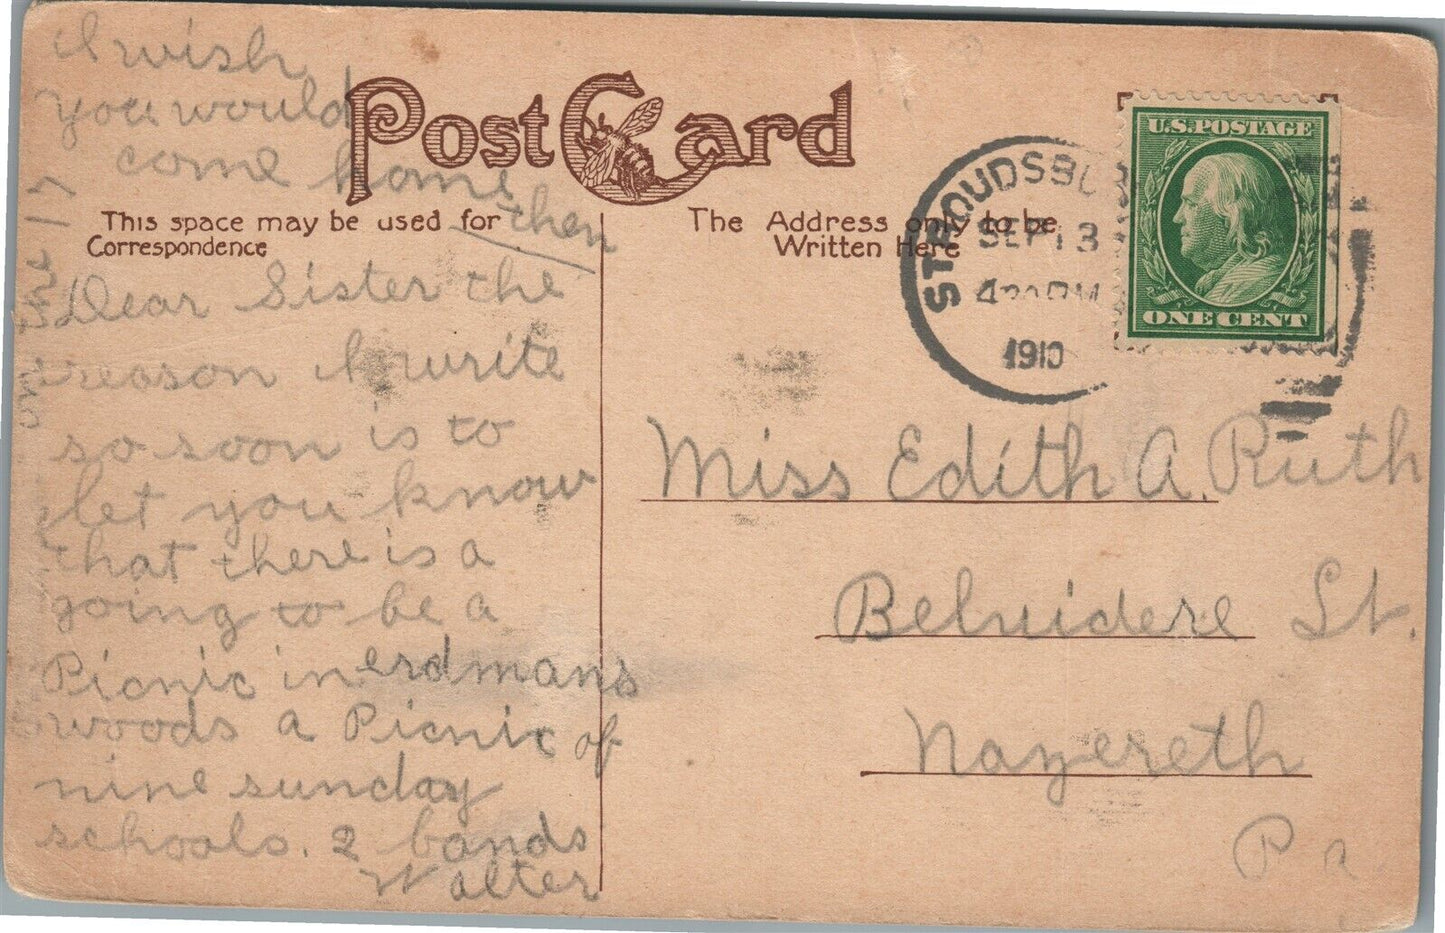 I wish
you would
come home
then
on the 17
Post Card
This space may be used for
Correspondence
The Address only to be
Written Here
Dear Sister the
reason I write
so soon is to
let you know
that there is a
going to be a
Picnic in erdmans
woods a Picnic of
nine sunday
schools. 2 bands
Walter
STROUDSBU
SEP 13
430 PM
1910
U.S. POSTAGE
ONE CENT
Miss Edith A. Ruth
Belvidere St.
Nazereth
Pa